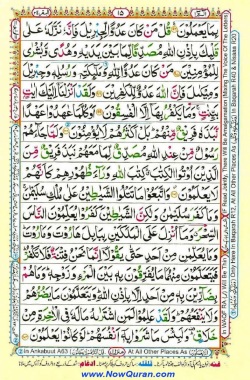 ١٥
بِمَا يَعْمَلُوْنَ قُلْ مَنْ كَانَ عَدُوًّا لِّجِبْرِيْلَ فَاِنَّهٗ نَزَّلَهٗ عَلٰى
قَلْبِكَ بِاِذْنِ اللّٰهِ مُصَدِّقًا لِّمَا بَيْنَ يَدَيْهِ وَهُدًى وَّبُشْرٰى
لِلْمُؤْمِنِيْنَ مَنْ كَانَ عَدُوًّا لِّلّٰهِ وَمَلٰٓئِكَتِهٖ وَرُسُلِهٖ وَجِبْرِيْلَ
وَمِيْكٰىلَ فَاِنَّ اللّٰهَ عَدُوٌّ لِّلْكٰفِرِيْنَ وَلَقَدْ اَنْزَلْنَآ اِلَيْكَ اٰيٰتٍۢ
بَيِّنٰتٍ وَمَا يَكْفُرُ بِهَآ اِلَّا الْفٰسِقُوْنَ اَوَكُلَّمَا عٰهَدُوْا عَهْدًا
نَّبَذَهٗ فَرِيْقٌ مِّنْهُمْ بَلْ اَكْثَرُهُمْ لَا يُؤْمِنُوْنَ وَلَمَّا جَآءَهُمْ
رَسُوْلٌ مِّنْ عِنْدِ اللّٰهِ مُصَدِّقٌ لِّمَا مَعَهُمْ نَبَذَ فَرِيْقٌ مِّنَ
الَّذِيْنَ اُوْتُوا الْكِتٰبَ كِتٰبَ اللّٰهِ وَرَآءَ ظُهُوْرِهِمْ كَاَنَّهُمْ لَا
يَعْلَمُوْنَ وَاتَّبَعُوْا مَا تَتْلُوا الشَّيٰطِيْنُ عَلٰى مُلْكِ سُلَيْمٰنَ
وَمَا كَفَرَ سُلَيْمٰنُ وَلٰكِنَّ الشَّيٰطِيْنَ كَفَرُوْا يُعَلِّمُوْنَ النَّاسَ
السِّحْرَ وَمَآ اُنْزِلَ عَلَى الْمَلَكَيْنِ بِبَابِلَ هَارُوْتَ وَمَارُوْتَ
وَمَا يُعَلِّمٰنِ مِنْ اَحَدٍ حَتّٰى يَقُوْلَآ اِنَّمَا نَحْنُ فِتْنَةٌ فَلَا تَكْفُرْ
فَيَتَعَلَّمُوْنَ مِنْهُمَا مَا يُفَرِّقُوْنَ بِهٖ بَيْنَ الْمَرْءِ وَزَوْجِهٖ وَمَا هُمْ
بِضَآرِّيْنَ بِهٖ مِنْ اَحَدٍ اِلَّا بِاِذْنِ اللّٰهِ وَيَتَعَلَّمُوْنَ مَا يَضُرُّهُمْ
وَلَا يَنْفَعُهُمْ وَلَقَدْ عَلِمُوْا لَمَنِ اشْتَرٰىهُ مَا لَهٗ فِى الْاٰخِرَةِ مِنْ
خَلَاقٍ وَلَبِئْسَ مَا شَرَوْا بِهٖٓ اَنْفُسَهُمْ لَوْ كَانُوْا يَعْلَمُوْنَ
In Ankabuut A63
At All Other Places As
www.NowQuran.com